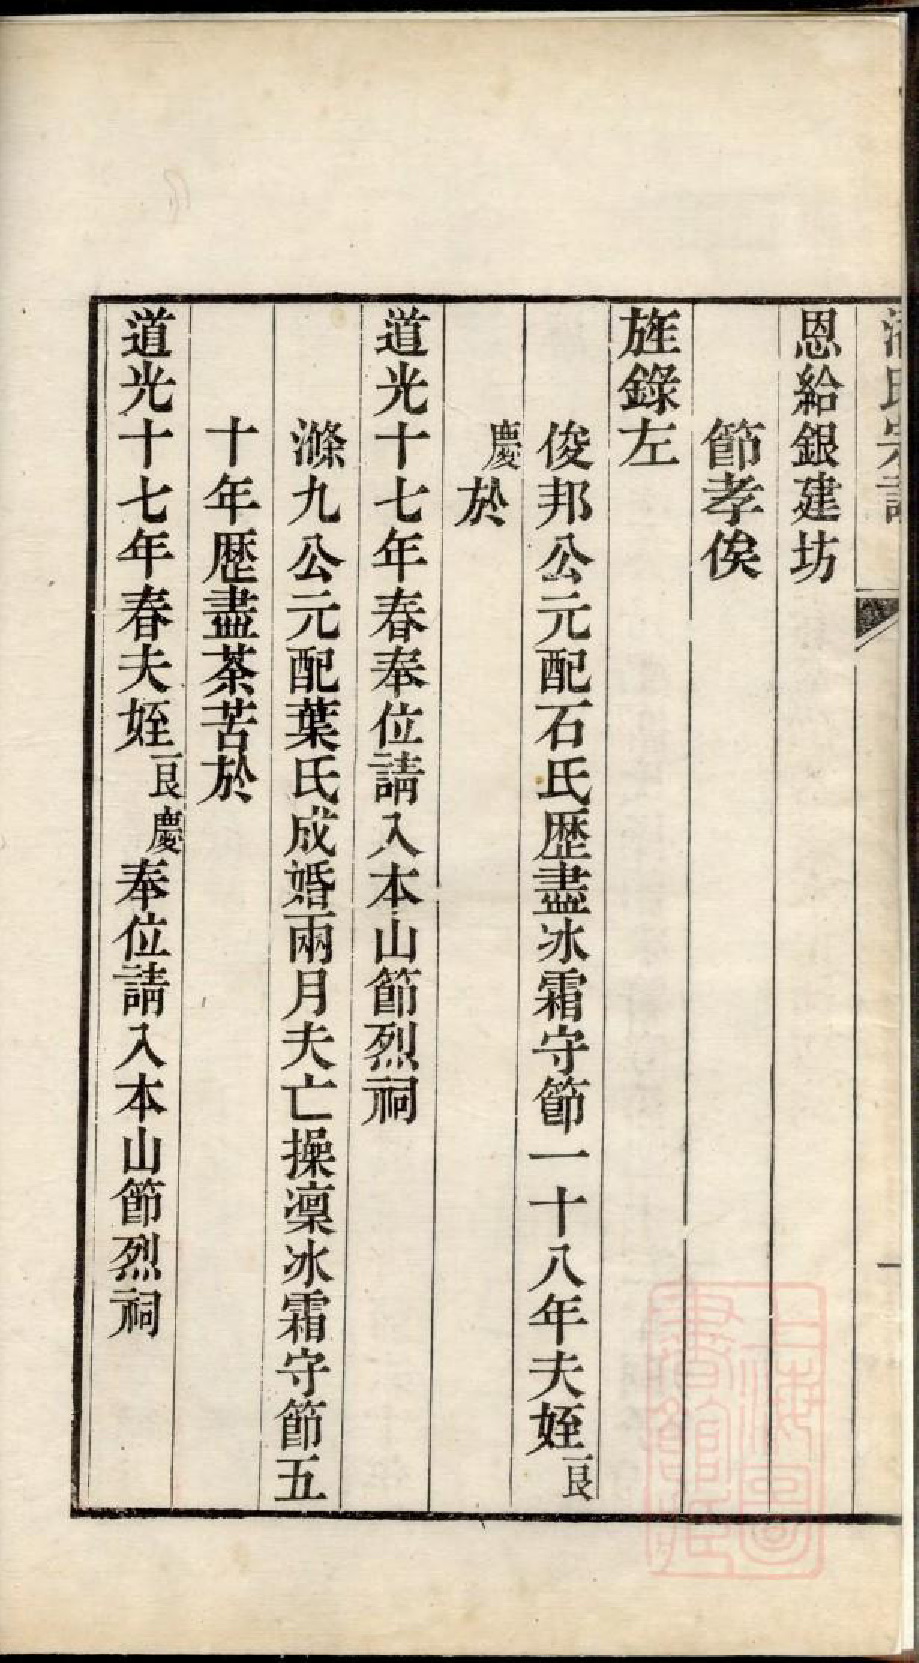 恩給銀建坊
節孝俟
旌錄左
俊邦公元配石氏歷盡冰霜守節一十八年夫姪良
慶於
道光十七年春奉位請入本山節烈祠
滌九公元配葉氏成婚兩月夫亡操凜冰霜守節五
十年歷盡荼苦於
道光十七年春夫姪良慶奉位請入本山節烈祠